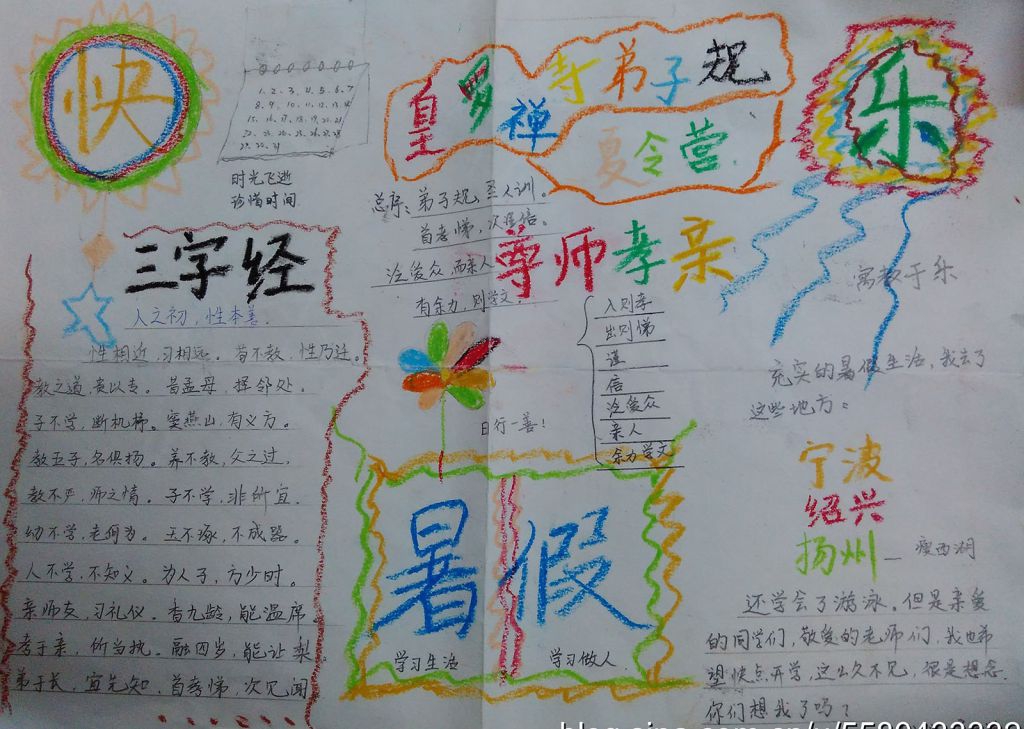 快
1. 2. 3. 4. 5. 6. 7
8. 9. 10. 11. 12. 13. 14
15. 16. 17. 18. 19. 20. 21
22. 23. 24. 25. 26. 27. 28
29. 30. 31
时光飞逝
珍惜时间
皇罗禅寺弟子规
夏令营.
乐
总序:弟子规,圣人训。
首孝悌,次谨信。
泛爱众,而亲人
有余力,则学文.
尊师孝亲
入则孝
出则悌
谨
信
泛爱众
亲人
余力学文
日行一善!
三字经
人之初,性本善.
性相近,习相远。苟不教,性乃迁。
教之道,贵以专。昔孟母,择邻处.
子不学,断机杼。窦燕山,有义方。
教五子,名俱扬。养不教,父之过.
教不严,师之情。子不学,非所宜.
幼不学,老何为。玉不琢,不成器。
人不学,不知义。为人子,方少时。
亲师友,习礼仪。香九龄,能温席.
孝于亲,所当执。融四岁,能让梨.
弟于长,宜先知.首孝悌,次见闻
暑假
学习生活
学习做人
寓教于乐
充实的暑假生活,我去了
这些地方。
宁波
绍兴
扬州—瘦西湖
还学会了游泳。但是亲爱
的同学们,敬爱的老师们,我也希
望快点开学,这么久不见,很是想念.
你们想我了吗?